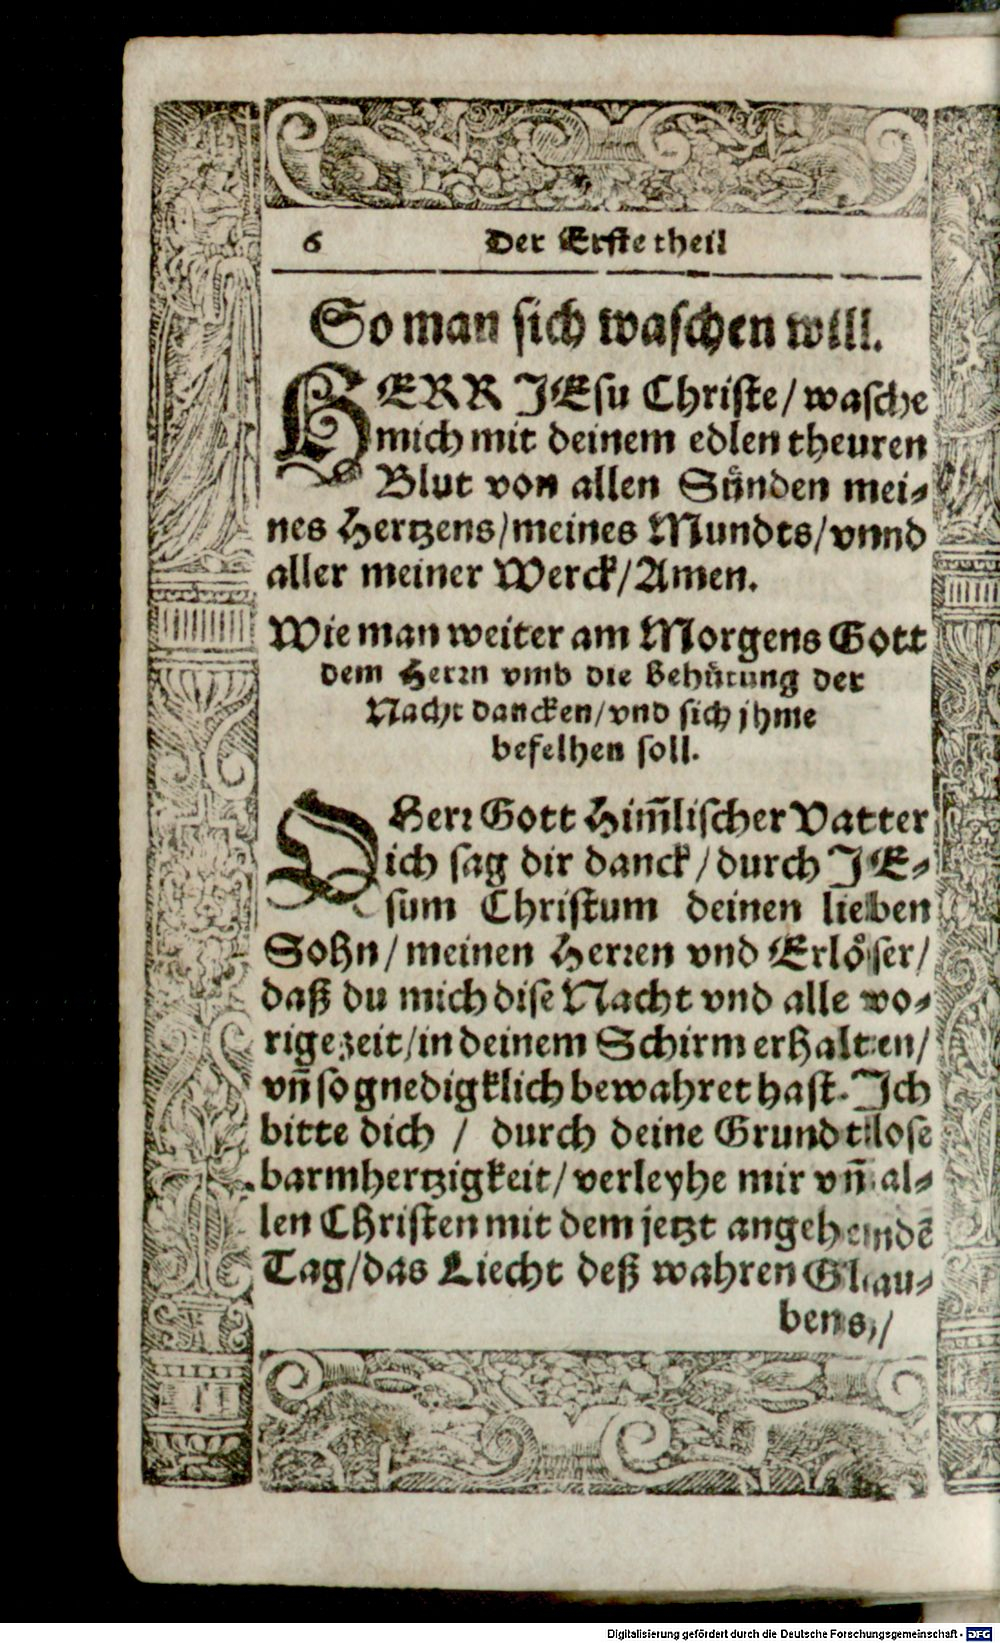 6 Der Erste theil
So man sich waschen will.
HERR JEsu Christe/ wasche
mich mit deinem edlen theuren
Blut von allen Sünden mei-
nes Hertzens/meines Mundts/vnnd
aller meiner Werck/Amen.
Wie man weiter am Morgens Gott
dem Herrn vmb die Behütung der
Nacht dancken/vnd sich jhme
befelhen soll.
O Herr Gott Him̄lischer Vatter
ich sag dir danck/durch JE-
sum Christum deinen lieben
Sohn/meinen Herren vnd Erlöser/
daß du mich dise Nacht vnd alle vo-
rige zeit/in deinem Schirm erhalten/
vn̄ so gnedigklich bewahret hast. Ich
bitte dich / durch deine Grundtlose
barmhertzigkeit/verleyhe mir vn̄ al-
len Christen mit dem jetzt angehendē
Tag/das Liecht deß wahren Glau-
bens/
Digitalisierung gefördert durch die Deutsche Forschungsgemeinschaft - DFG